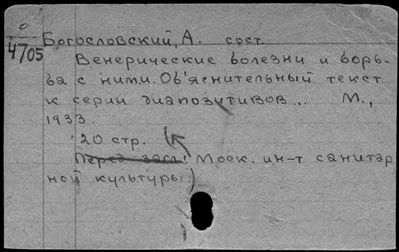 о
4705
Богословский, А. сост.
Венерические болезни и борь-
ба с ними. Об'яснительный текст
к серии диапозитивов... М.,
1933.
20 стр.
Перед загл: Моск. ин-т санитар
ной культуры)